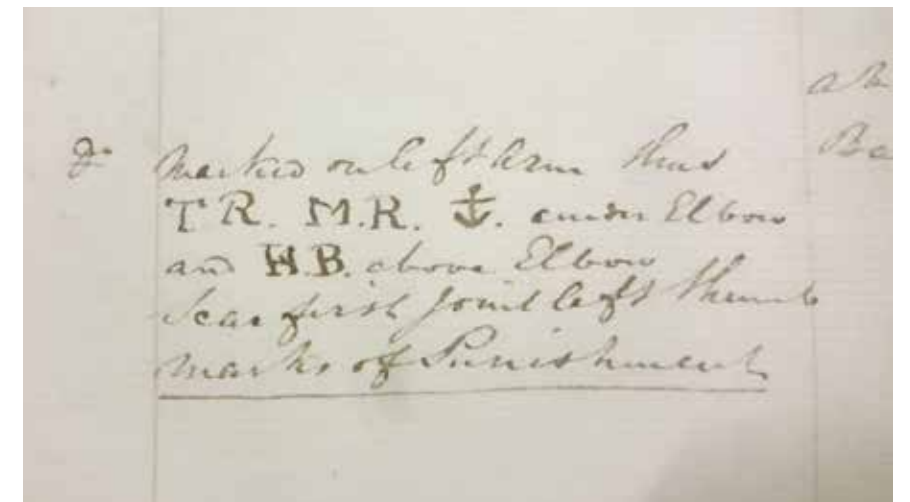 Marked on left Arm thus
T R. M.R. ⚓. under Elbow
and H.B. above Elbow
Scar first Joint left Thumb
marks of Punishment